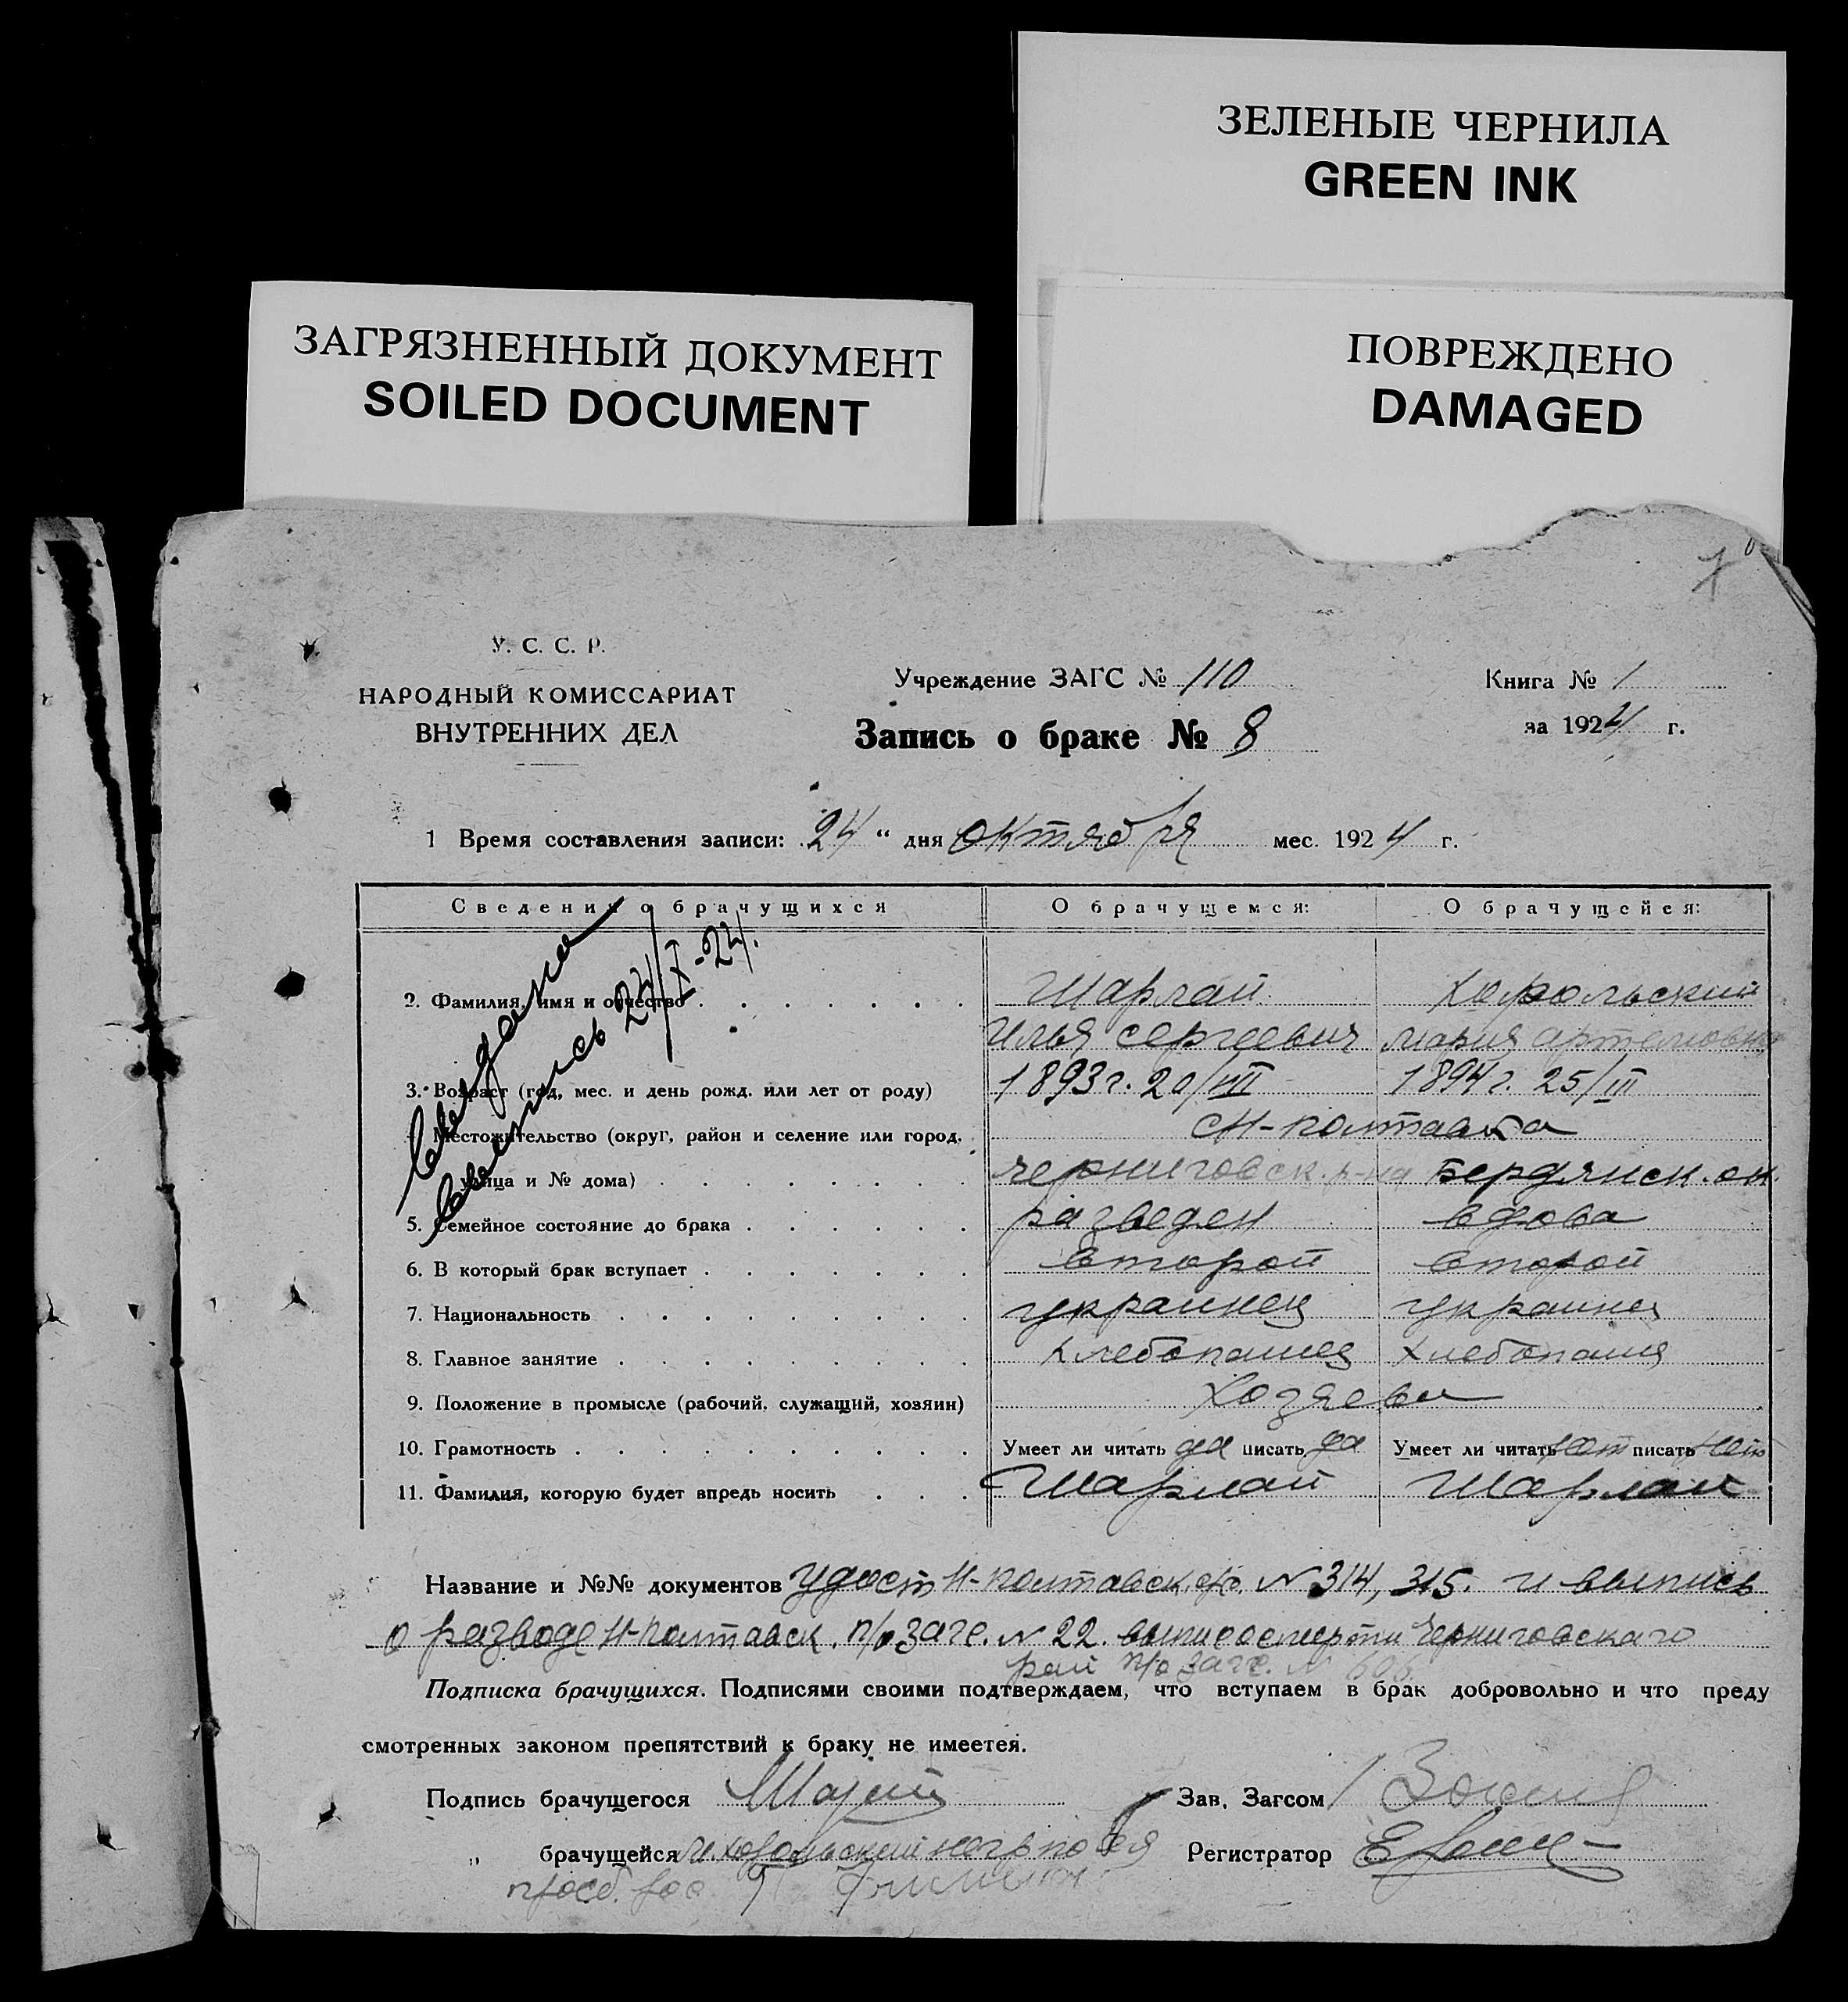 ЗЕЛЕНЫЕ ЧЕРНИЛА
GREEN INK
ЗАГРЯЗНЕННЫЙ ДОКУМЕНТ
SOILED DOCUMENT
ПОВРЕЖДЕНО
DAMAGED
У. С. С. Р.
НАРОДНЫЙ КОМИССАРИАТ
ВНУТРЕННИХ ДЕЛ
Учреждение ЗАГС № 110
Запись о браке № 8
Книга № 1
за 1924 г.
1 Время составления записи: 24 “ дня октября мес. 1924 г.
Сведения о брачущихся О брачущемся: О брачущейся:
2. Фамилия, имя и отчество Шарлай Хорольский
Илья Сергеевич Мария Артемовна
3. Возраст (год, мес. и день рожд. или лет от роду) 1893 г. 20/VII 1894 г. 25/III
Местожительство (округ, район и селение или город, сн-полтавка
улица и № дома) Черниговск. р-на Бердянск. ок.
5. Семейное состояние до брака разведен вдова
6. В который брак вступает второй второй
7. Национальность украинец украинец
8. Главное занятие хлебопашец хлебопашец
9. Положение в промысле (рабочий, служащий, хозяин) Хозяева
10. Грамотность Умеет ли читать да писать да Умеет ли читать нет писать нет
11. Фамилия, которую будет впредь носить Шарлай Шарлай
22/X-24.
Название и №№ документов Удост Н-полтавск. N 314, 315. и выпись
о разводе Н-полтавск. п/о загс. N 22. выпис о смерти Черниговскаго
рай п/о загс. N 606.
Подписка брачущихся. Подписями своими подтверждаем, что вступаем в брак добровольно и что преду
смотренных законом препятствий к браку не имеется.
Подпись брачущегося Шарлай Зав. Загсом
„ брачущейся М. Хорольский негр по ея Регистратор
прosб. рос.